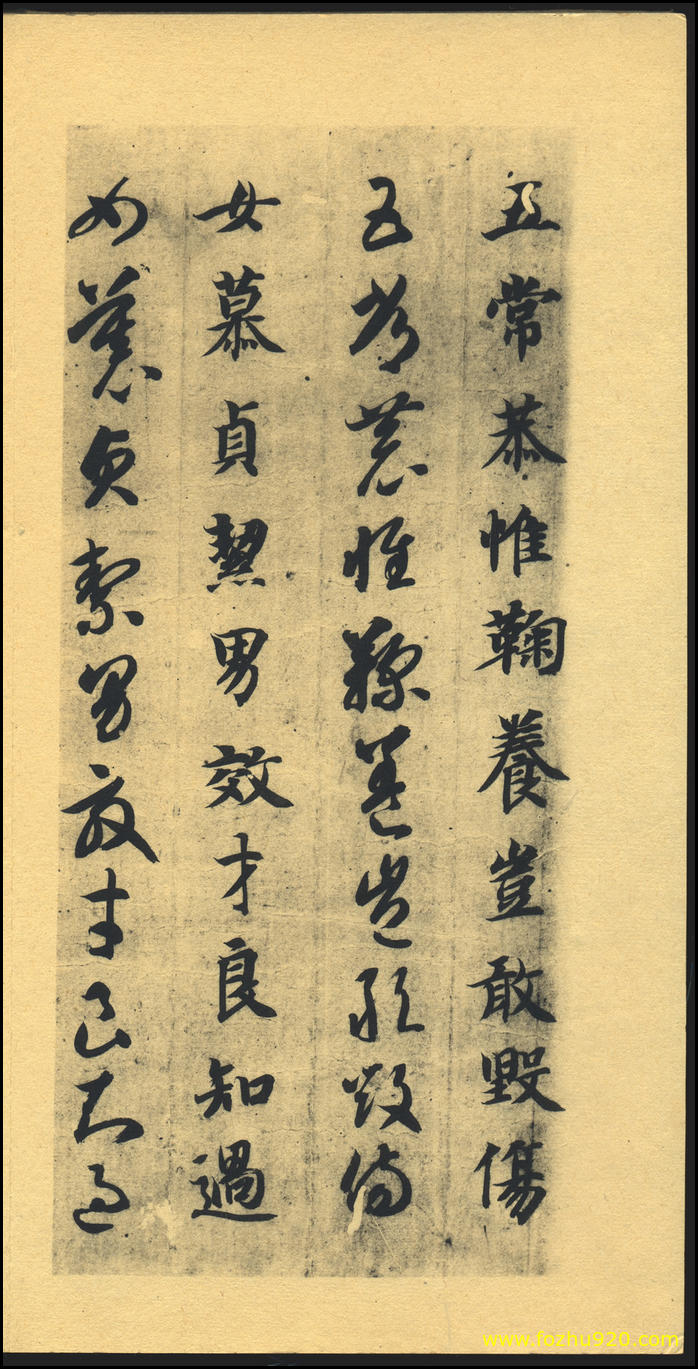 五常恭惟鞠養豈敢毀傷
五常恭惟鞠養豈敢毀傷
女慕貞絜男效才良知過
女慕貞絜男效才良知過
www.fozhu920.com